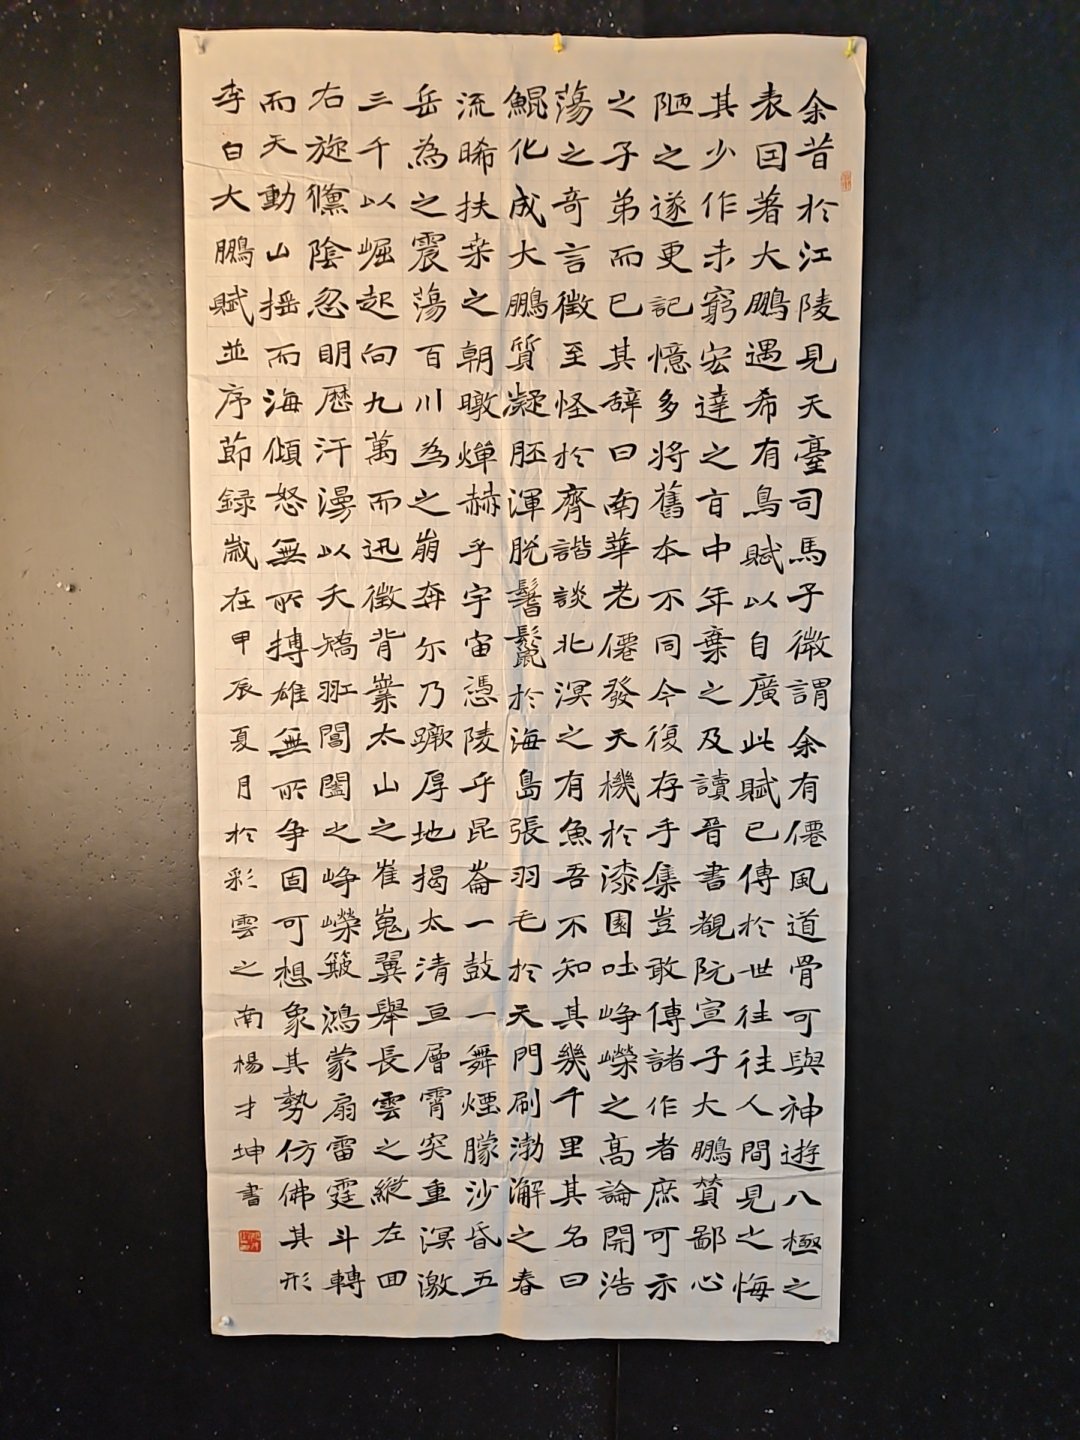 余昔於江陵見天臺司馬子微謂余有僊風道骨可與神遊八極之
表因著大鵬遇希有鳥賦以自廣此賦已傳於世往往人間見之悔
其少作未窮宏達之旨中年棄之及讀晉書覩阮宣子大鵬贊鄙心
陋之遂更記憶多將舊本不同今復存手集豈敢傳諸作者庶可示
之子弟而已其辭曰南華老僊發天機於漆園吐崢嶸之高論開浩
蕩之奇言徵至怪於齊諧談北溟之有魚吾不知其幾千里其名曰
鯤化成大鵬質凝胚渾脫鬐鬣於海島張羽毛於天門刷渤澥之春
流晞扶桒之朝暾燀赫乎宇宙憑陵乎昆崙一鼓一舞煙朦沙昏五
岳為之震蕩百川為之崩奔尔乃蹶厚地揭太清亘層霄突重溟激
三千以崛起向九萬而迅徵背嶪太山之崔嵬翼舉長雲之縱左回
右旋儵陰忽明歷汗漫以夭矯羾閶闔之崢嶸簸鴻蒙扇雷霆斗轉
而天動山揺而海傾怒無所搏雄無所争固可想象其勢仿佛其形
李白大鵬賦並序節録歲在甲辰夏月於彩雲之南楊才坤書